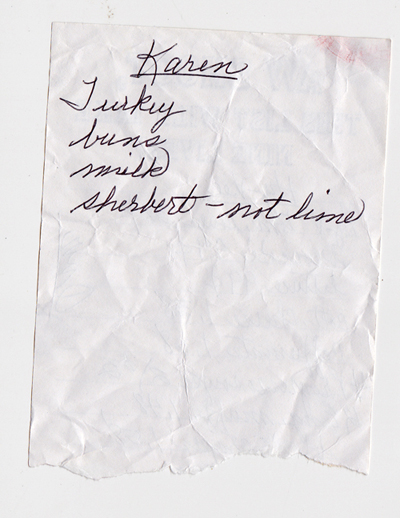 Karen
Turkey
buns
milk
sherbert - not lime